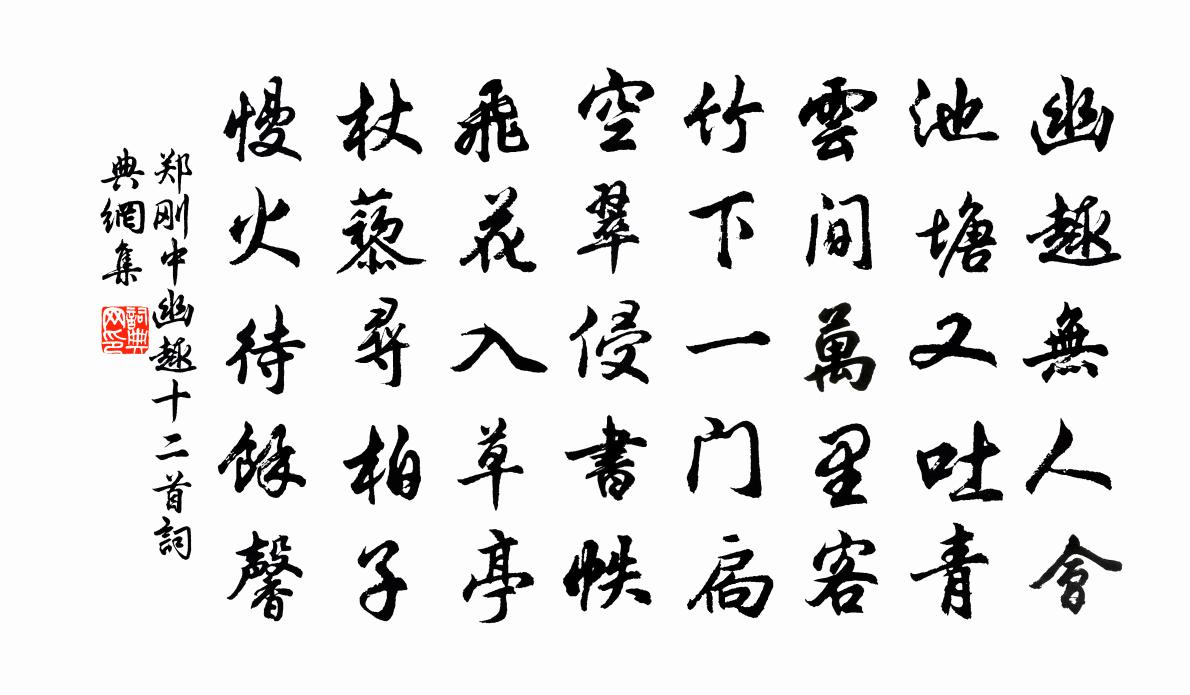 幽趣無人會
池塘又吐青
雲间萬里客
竹下一门扃
空翠侵書帙
飛花入草亭
杖藜尋柏子
慢火待餘馨
郑刚中幽趣十二首詞
典網集
詞典
网印